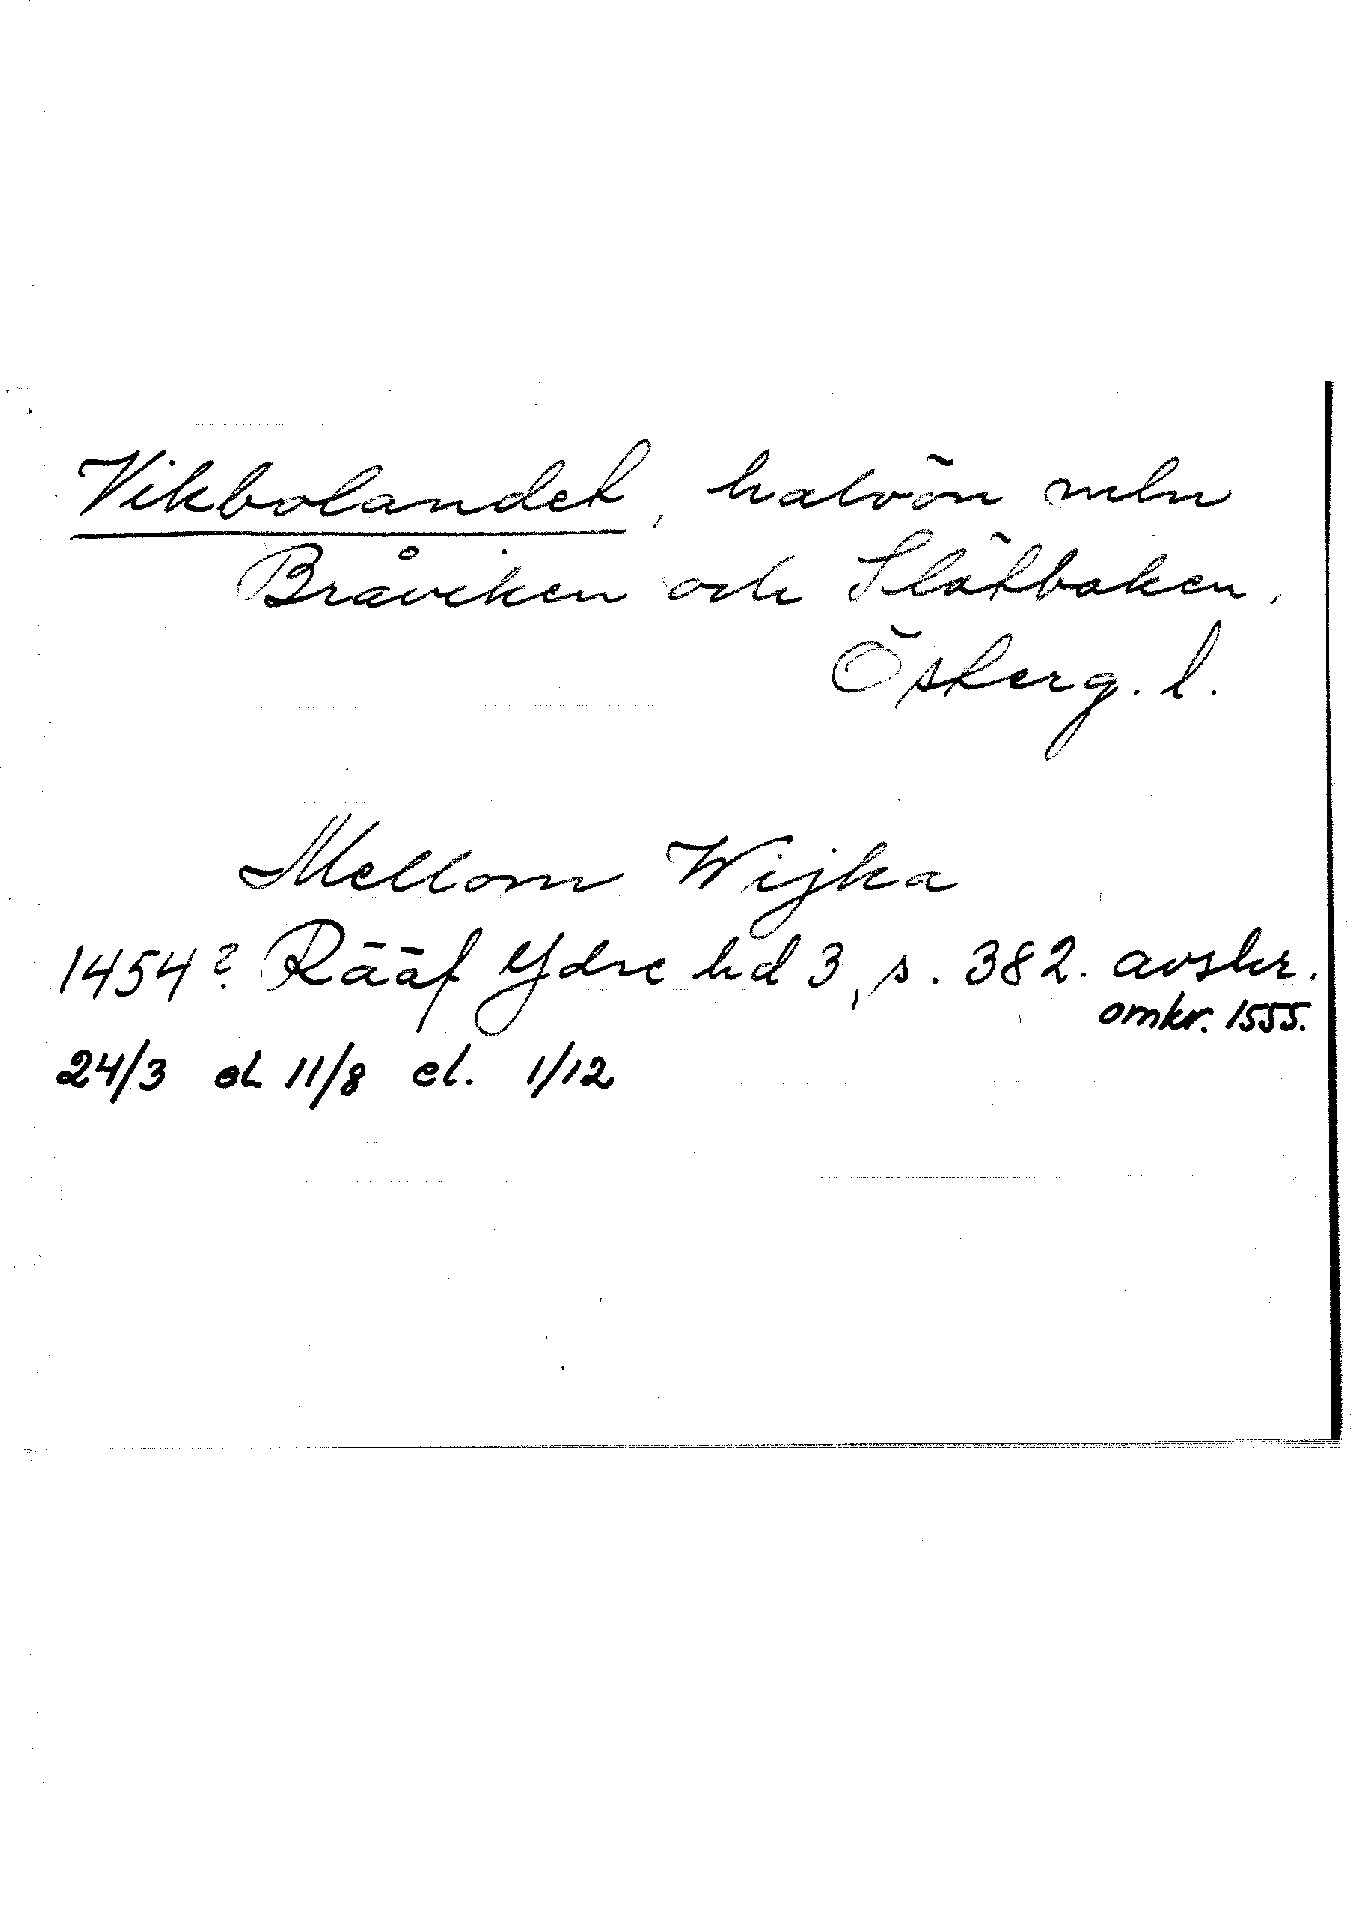 Vikbolandet, halvön mln
Bråviken och Slätbaken,
Österg. l.
Mellom Wijka
1454? Rääf Ydre hd 3, s. 382. avskr.
omkr. 1555.
24/3 el. 11/8 el. 1/12